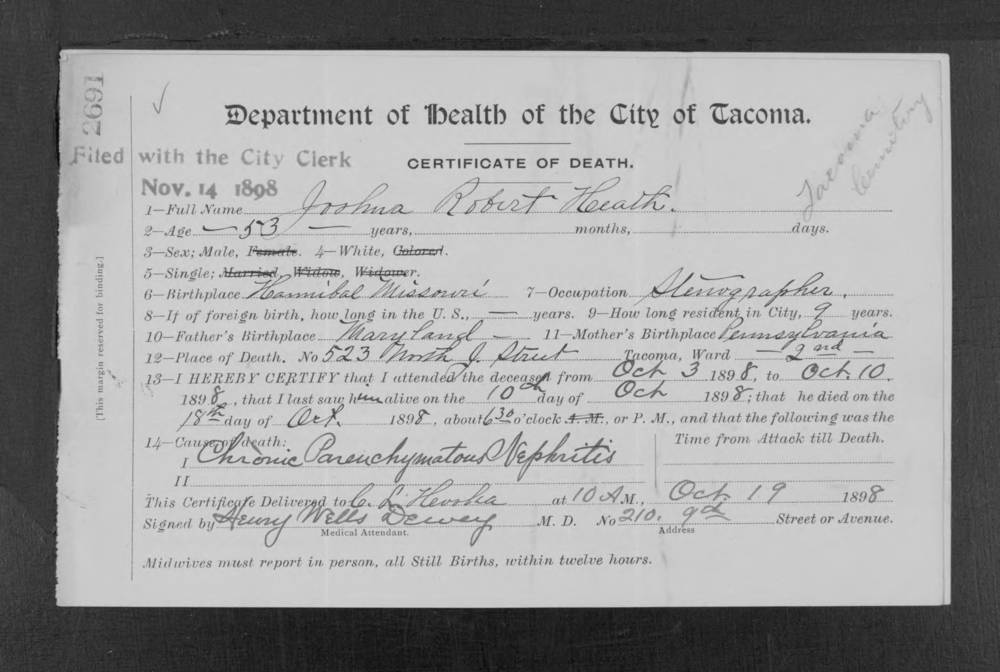 2691
Department of Health of the City of Tacoma.
Tacoma
Cemetery
Filed with the City Clerk
CERTIFICATE OF DEATH.
Nov. 14 1898
1—Full Name Joshua Robert Heath.
2—Age — 53 — years, months, days.
3—Sex; Male, Female. 4—White, Colored.
5—Single; Married, Widow, Widower.
6—Birthplace Hannibal Missouri 7—Occupation Stenographer.
8—If of foreign birth, how long in the U. S., — years. 9—How long resident in City, 9 years.
10—Father's Birthplace Maryland — 11—Mother's Birthplace Pennsylvania
12—Place of Death. No 523 North J. Street Tacoma, Ward — 2nd —
13—I HEREBY CERTIFY that I attended the deceased from Oct 3 1898, to Oct. 10.
1898, that I last saw him alive on the 10th day of Oct 1898; that he died on the
18th day of Oct. 1898, about 6 30 o'clock A. M., or P. M., and that the following was the
14—Cause of death: Time from Attack till Death.
I Chronic Parenchymatous Nephritis
II
This Certificate Delivered to C. L. at 10 A M., Oct. 19 1898
Signed by Henry Wells Dewey M. D. No 210. 9th Street or Avenue.
Medical Attendant. Address
Midwives must report in person, all Still Births, within twelve hours.
[This margin reserved for binding.]